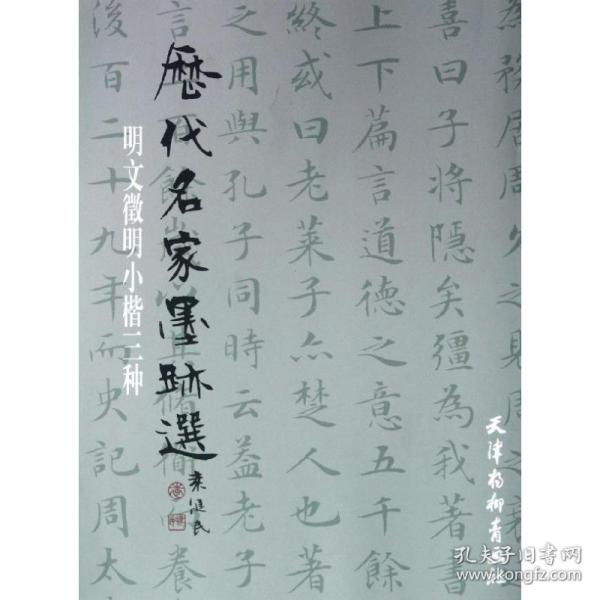 歷代名家墨跡選
明文徵明小楷三种
天津杨柳青画社
為務居周久之見周
喜曰子將隱矣彊為我著書
上下篇言道德之意五千餘
終或曰老萊子亦楚人也著
之用與孔子同時云蓋老子
後百二十九年而史記周太
孔夫子旧书网
www.kongfz.com